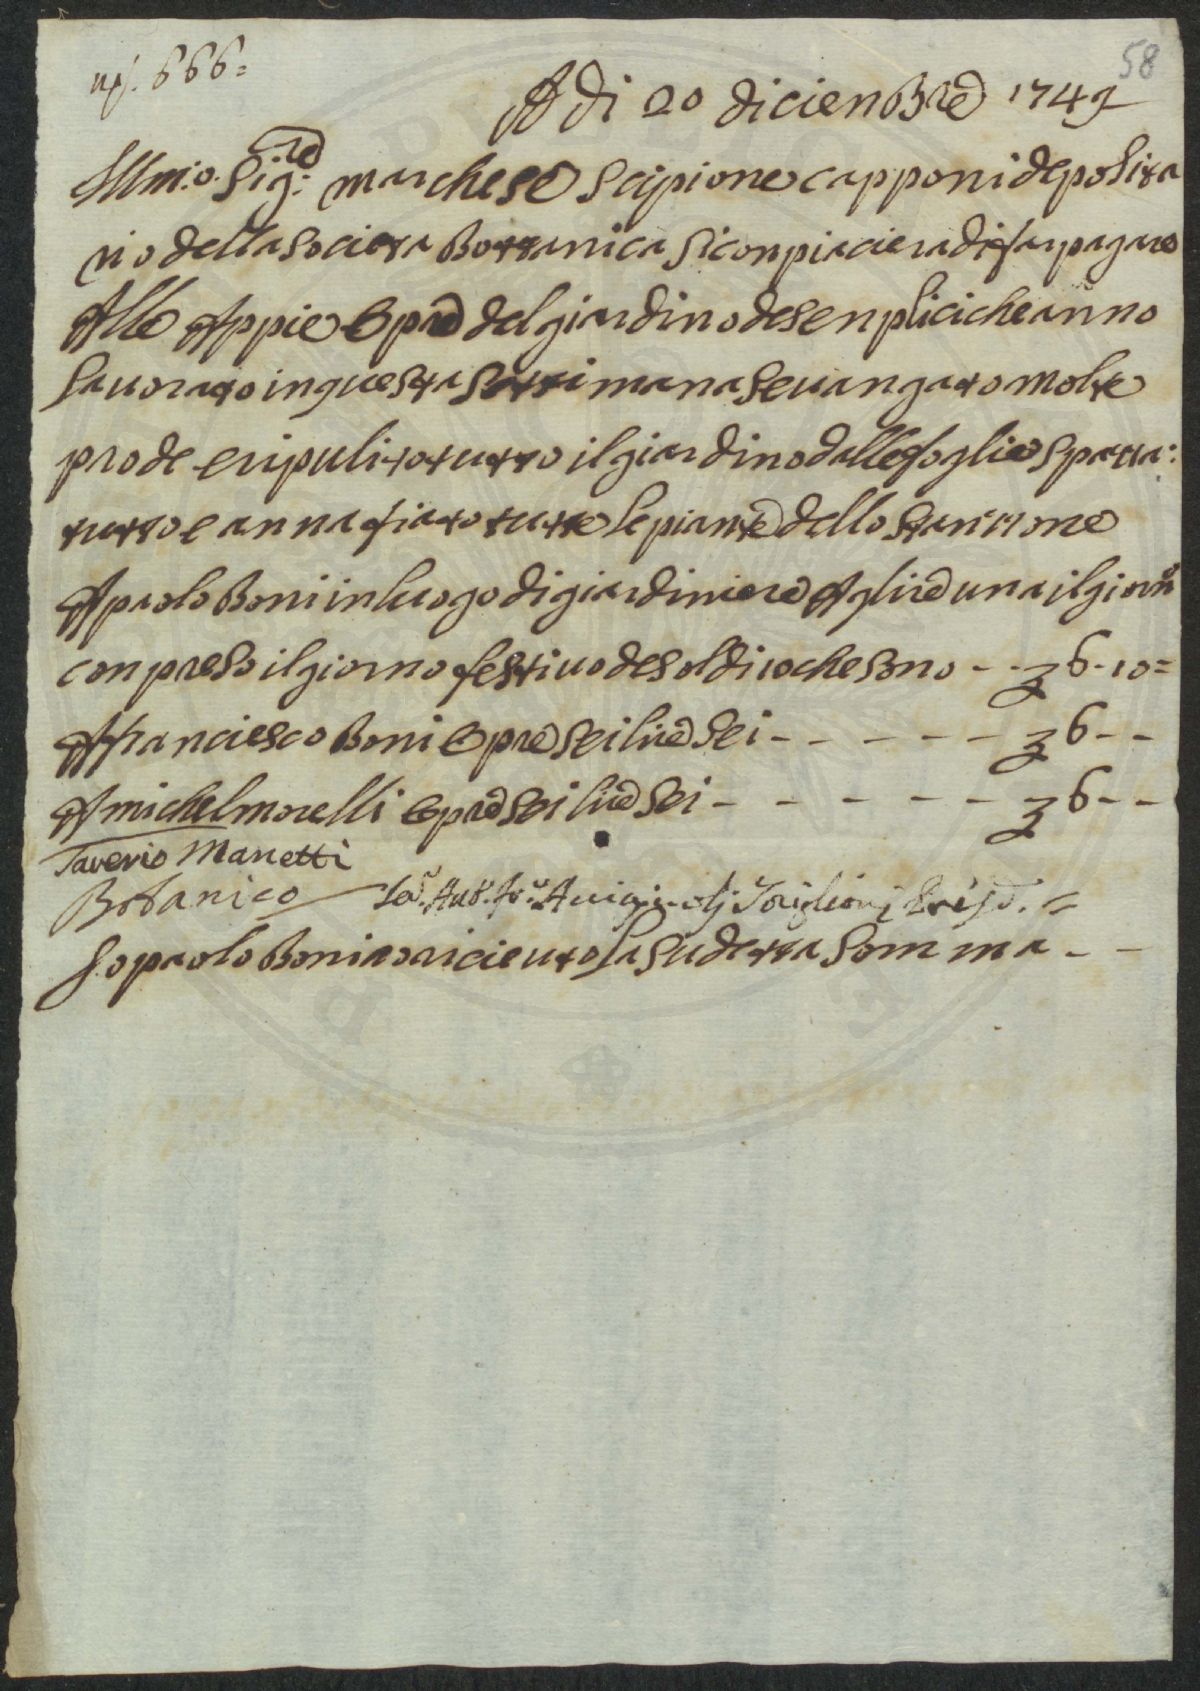 58
n°. 666=
A di 20 dicienbre 1749
Illm:o. Sig:re marchese Scipione capponi deposita
rio della Societa Bottanica Si conpiaciera di far pagare
Alle Appie Opre del giardino de senplici che anno
lavorato in questa Settimana Se vangato molte
prode e ripulito tutto il giardino dalle foglie Spazza:
tutto e annafiato tutte le piante dello Stanzone
A paolo Boni in luogo di giardiniere A lire una il giorno
conpreso il giorno festivo de soldi 10 che sono - - £ 6 - 10 =
A franciesco Boni Opre sei lire Sei - - - - - - £ 6 - -
A michel morelli Opre sei lire sei - - - - - - £ 6 - -
Saverio Manetti
Botanico
Io paolo Boni o riceuto la Sudetta Somma - -